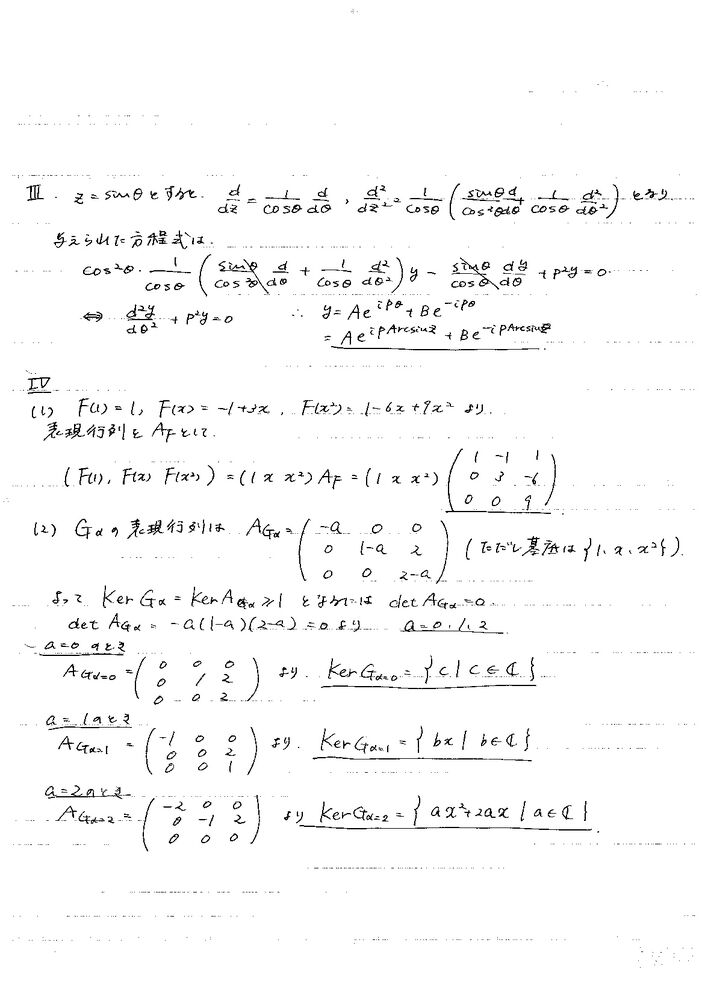 III. z = sinθとすると. d/dz = 1/cosθ d/dθ , d²/dz² = 1/cosθ ( sinθ/cos²θ d/dθ + 1/cosθ d²/dθ² ) となり
与えられた方程式は.
cos²θ · 1/cosθ ( sinθ/cos²θ d/dθ + 1/cosθ d²/dθ² ) y − sinθ/cosθ dy/dθ + p²y = 0.
⇔ d²y/dθ² + p²y = 0 ∴ y = Ae^{ipθ} + Be^{-ipθ}
= Ae^{ipArcsinz} + Be^{-ipArcsinz}
IV
(1) F(1) = 1, F(x) = −1+3x , F(x²) = 1−6x+9x² より.
表現行列を A_F として.
( F(1), F(x) F(x²) ) = (1 x x²) A_F = (1 x x²) ( 1 -1 1
0 3 -6
0 0 9 )
(2) Gα の表現行列は A_{Gα} = ( -a 0 0
0 1-a 2
0 0 2-a ) (ただし基底は{1, x, x²}).
よって Ker Gα = Ker A_{Gα} ≥ 1 となるには det A_{Gα} = 0.
det A_{Gα} = −a(1−a)(2−a) = 0 より a = 0, 1, 2
a=0 のとき
A_{Gα=0} = ( 0 0 0
0 1 2
0 0 2 ) より. Ker G_{α=0} = { c | c ∈ ℂ }
a=1のとき
A_{Gα=1} = ( -1 0 0
0 0 2
0 0 1 ) より. Ker G_{α=1} = { bx | b ∈ ℂ }
a=2のとき
A_{Gα=2} = ( -2 0 0
0 -1 2
0 0 0 ) より Ker G_{α=2} = { ax²+2ax | a ∈ ℂ }